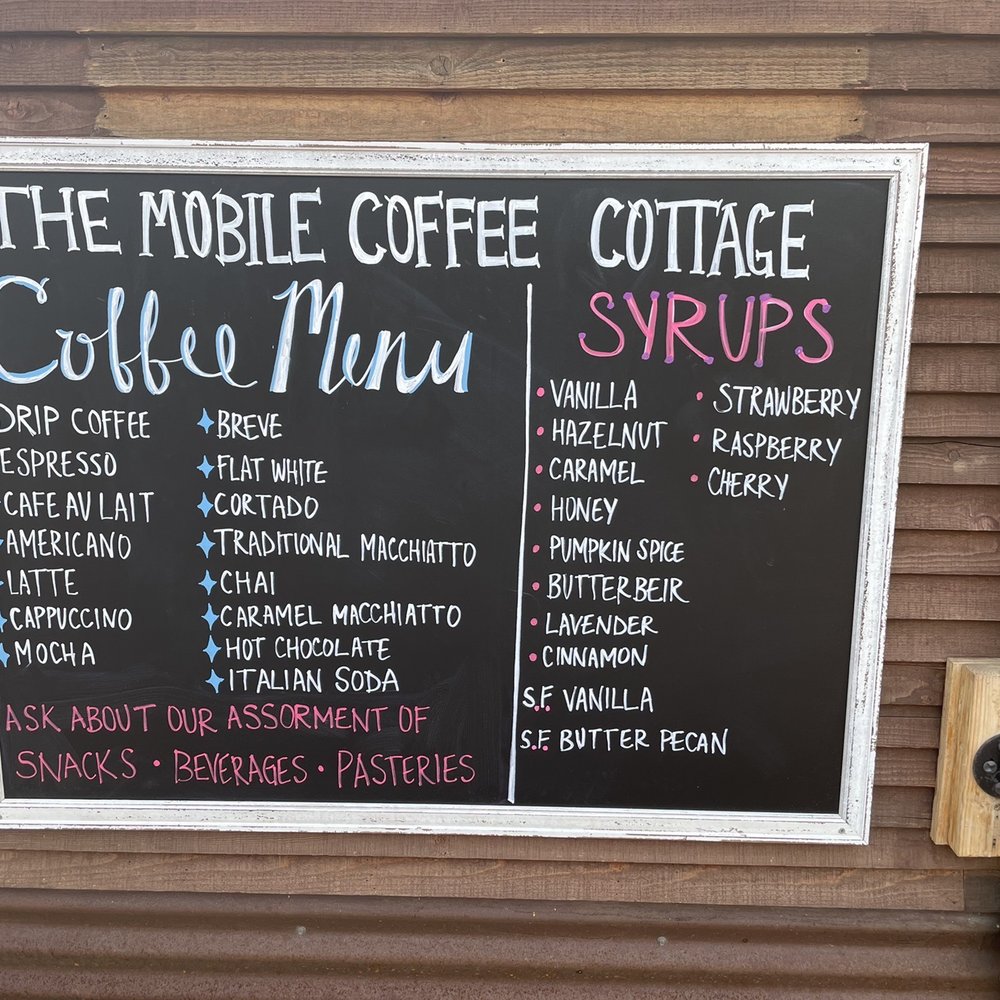 THE MOBILE COFFEE COTTAGE
Coffee Menu
DRIP COFFEE
ESPRESSO
CAFE AU LAIT
AMERICANO
LATTE
CAPPUCCINO
MOCHA
BREVE
FLAT WHITE
CORTADO
TRADITIONAL MACCHIATTO
CHAI
CARAMEL MACCHIATTO
HOT CHOCOLATE
ITALIAN SODA
ASK ABOUT OUR ASSORMENT OF
SNACKS • BEVERAGES • PASTERIES
SYRUPS
• VANILLA
• HAZELNUT
• CARAMEL
• HONEY
• PUMPKIN SPICE
• BUTTERBEIR
• LAVENDER
• CINNAMON
S.F. VANILLA
S.F. BUTTER PECAN
• STRAWBERRY
• RASPBERRY
• CHERRY